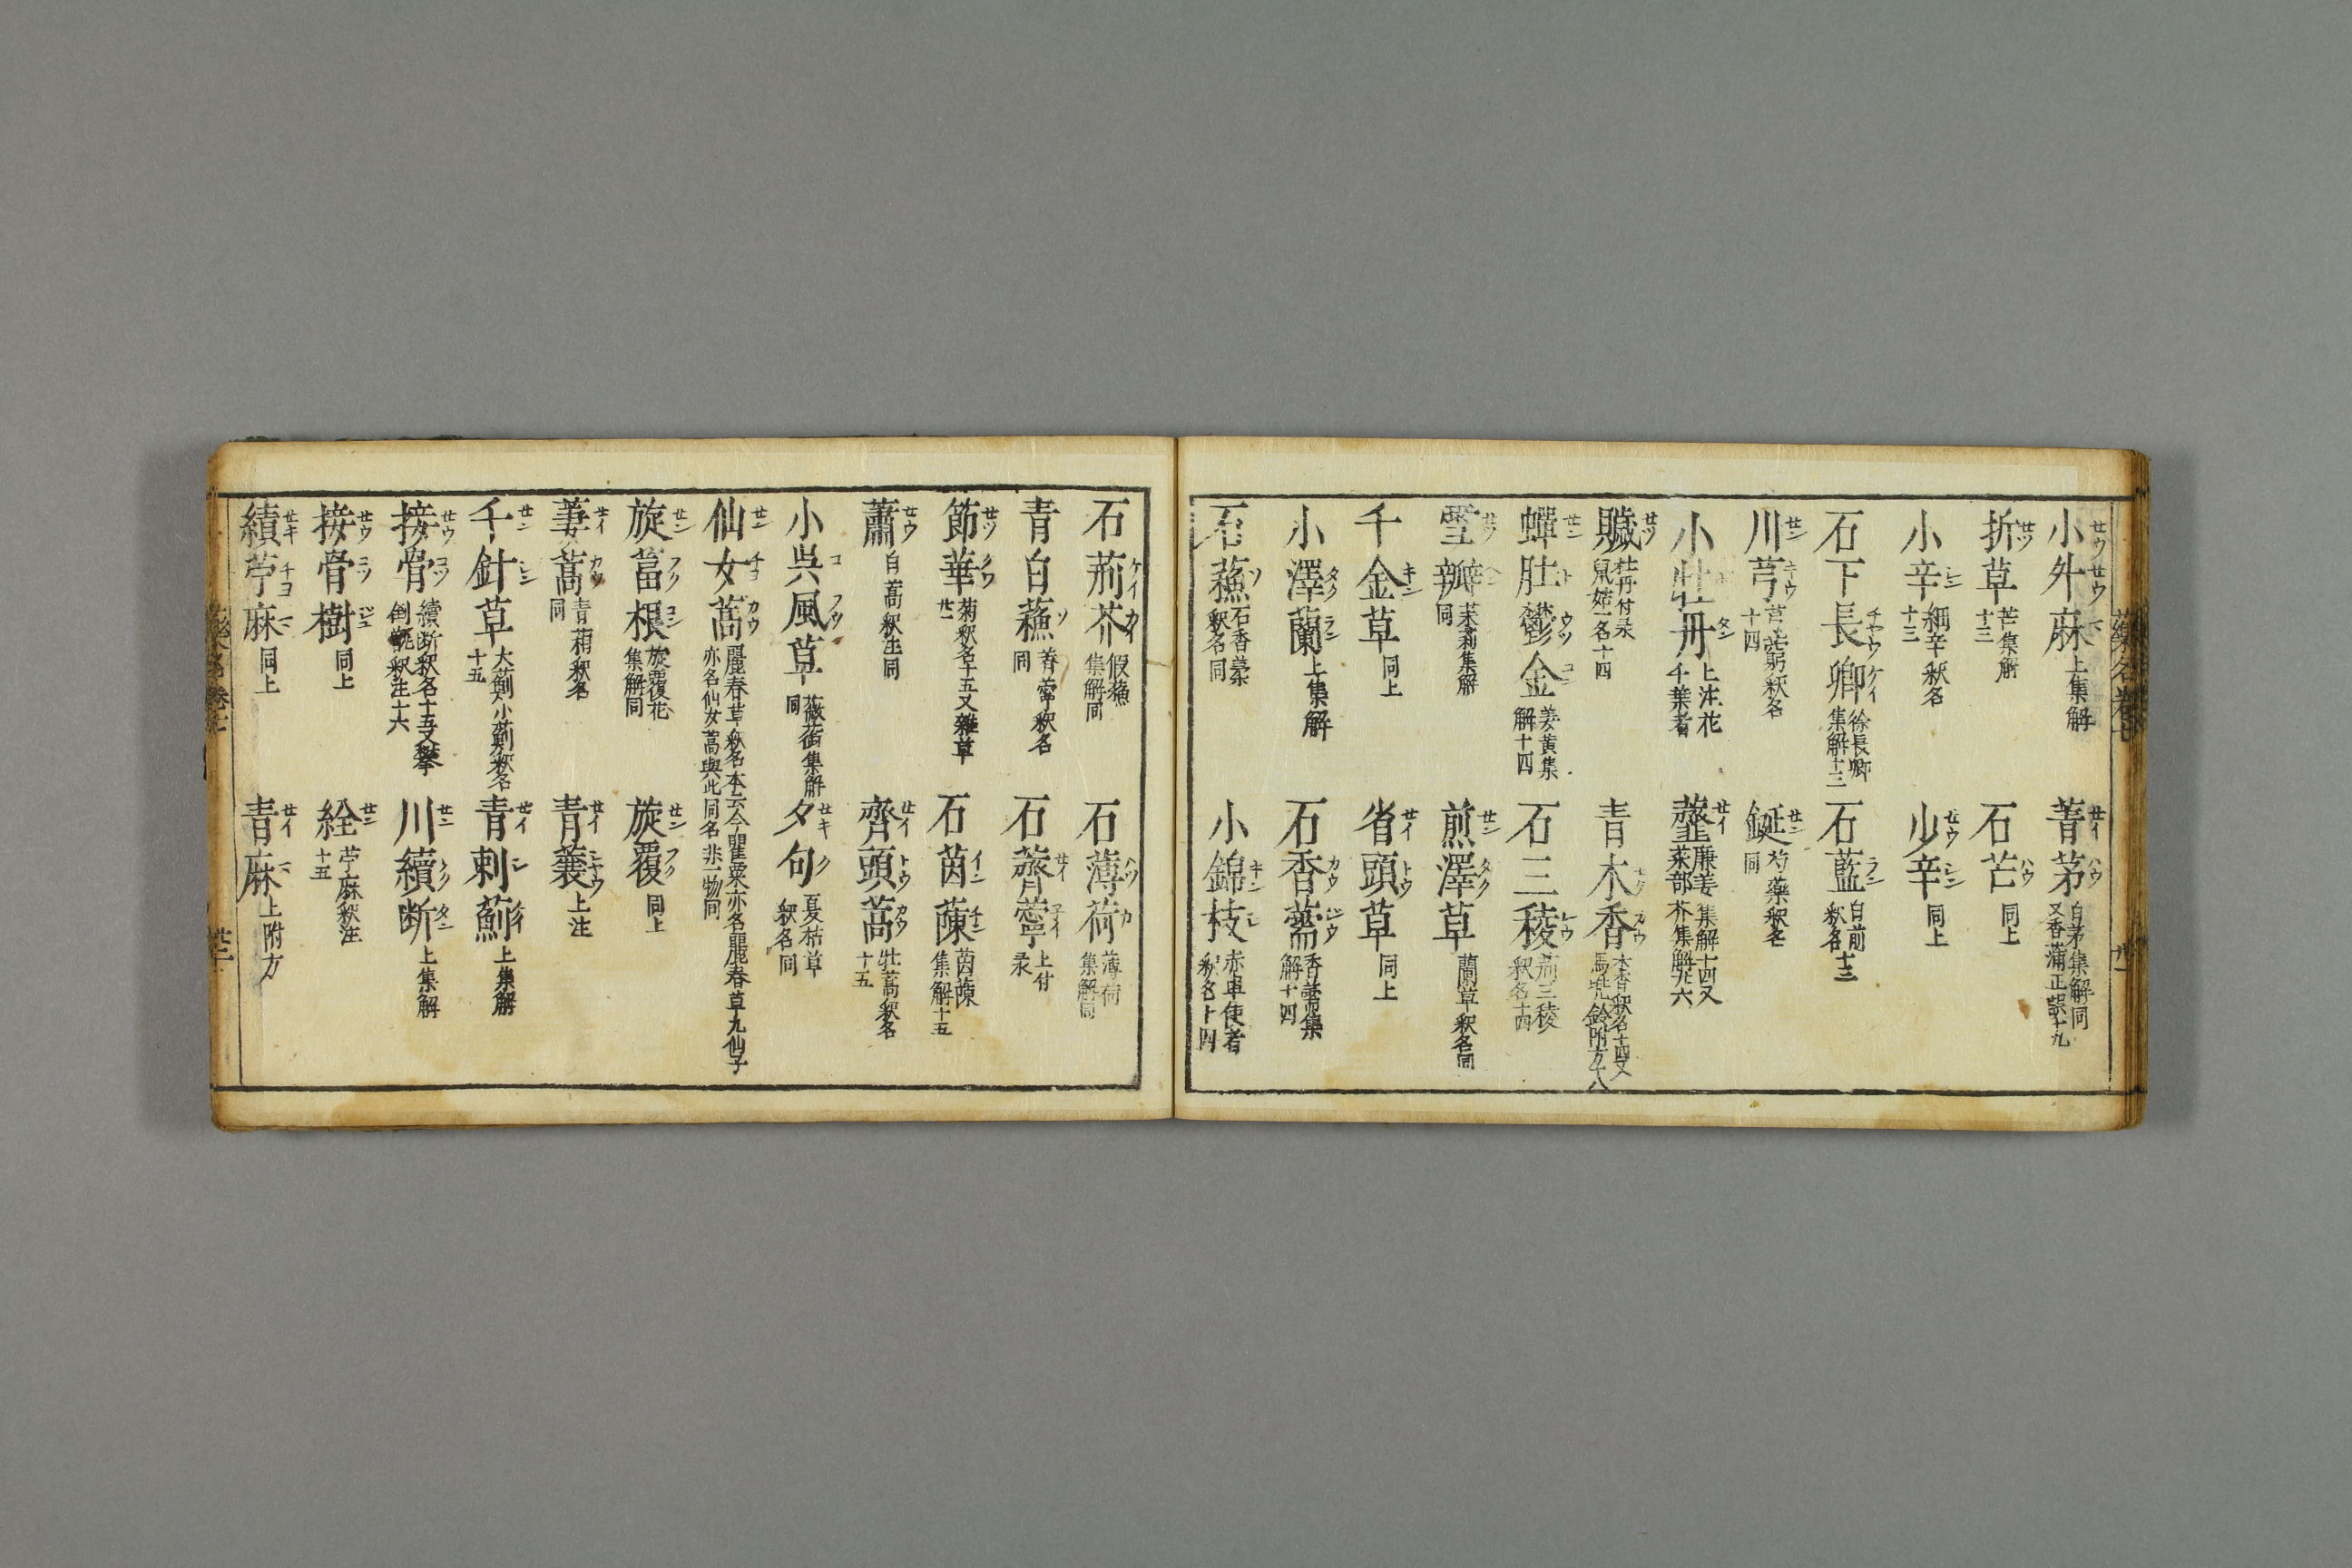 小升麻 上集解
菁茅 白茅集解同又香蒲正誤十九
折草 芒集解十三
石芒 同上
小辛 細辛釈名十三
少辛 同上
石下長卿 徐長卿集解十三
石藍 白前釈名十三
川芎 芎藭釈名十四
鋋 芍藥釈名同
小牡丹 上注花千葉者
蘁 廉姜集解十四又菜部芥集解廿六
鼠姑一名十四 牡丹付录
青木香 木香釈名十四又馬兜鈴附方十八
蟬肚鬱金 姜黄集解十四
石三稜 荊三稜釈名十四
雪瓣 茉莉集解同
煎澤草 蘭草釈名同
千金草 同上
省頭草 同上
小澤蘭 上集解
石香薷 香薷集解十四
石蘓 石香葇釈名同
小錦枝 赤車使者釈名十四
石荊芥 假蘓集解同
石薄荷 薄荷集解同
青白蘓 薺薴釈名同
石薺薴 上付录
節華 菊釈名十五又雜草廿一
石茵蔯 茵蔯集解十五
蕭 白蒿釈注同
齊頭蒿 牡蒿釈名十五
小吳風草 薇蕪集解同
夕句 夏枯草釈名同
仙女蒿 麗春草釈名本云今罌粟亦名麗春草九仙子亦名仙女蒿與此同名非一物同
旋葍根 旋覆花集解同
旋覆 同上
萋蒿 青葙釈名同
青蘘 上注
千針草 大薊小薊釈名十五
青刺薊 上集解
接骨 續断釈名十五又攀倒甑釈注十六
川續断 上集解
接骨樹 同上
絟 苧麻釈注十五
績苧麻 同上
青麻 上附方